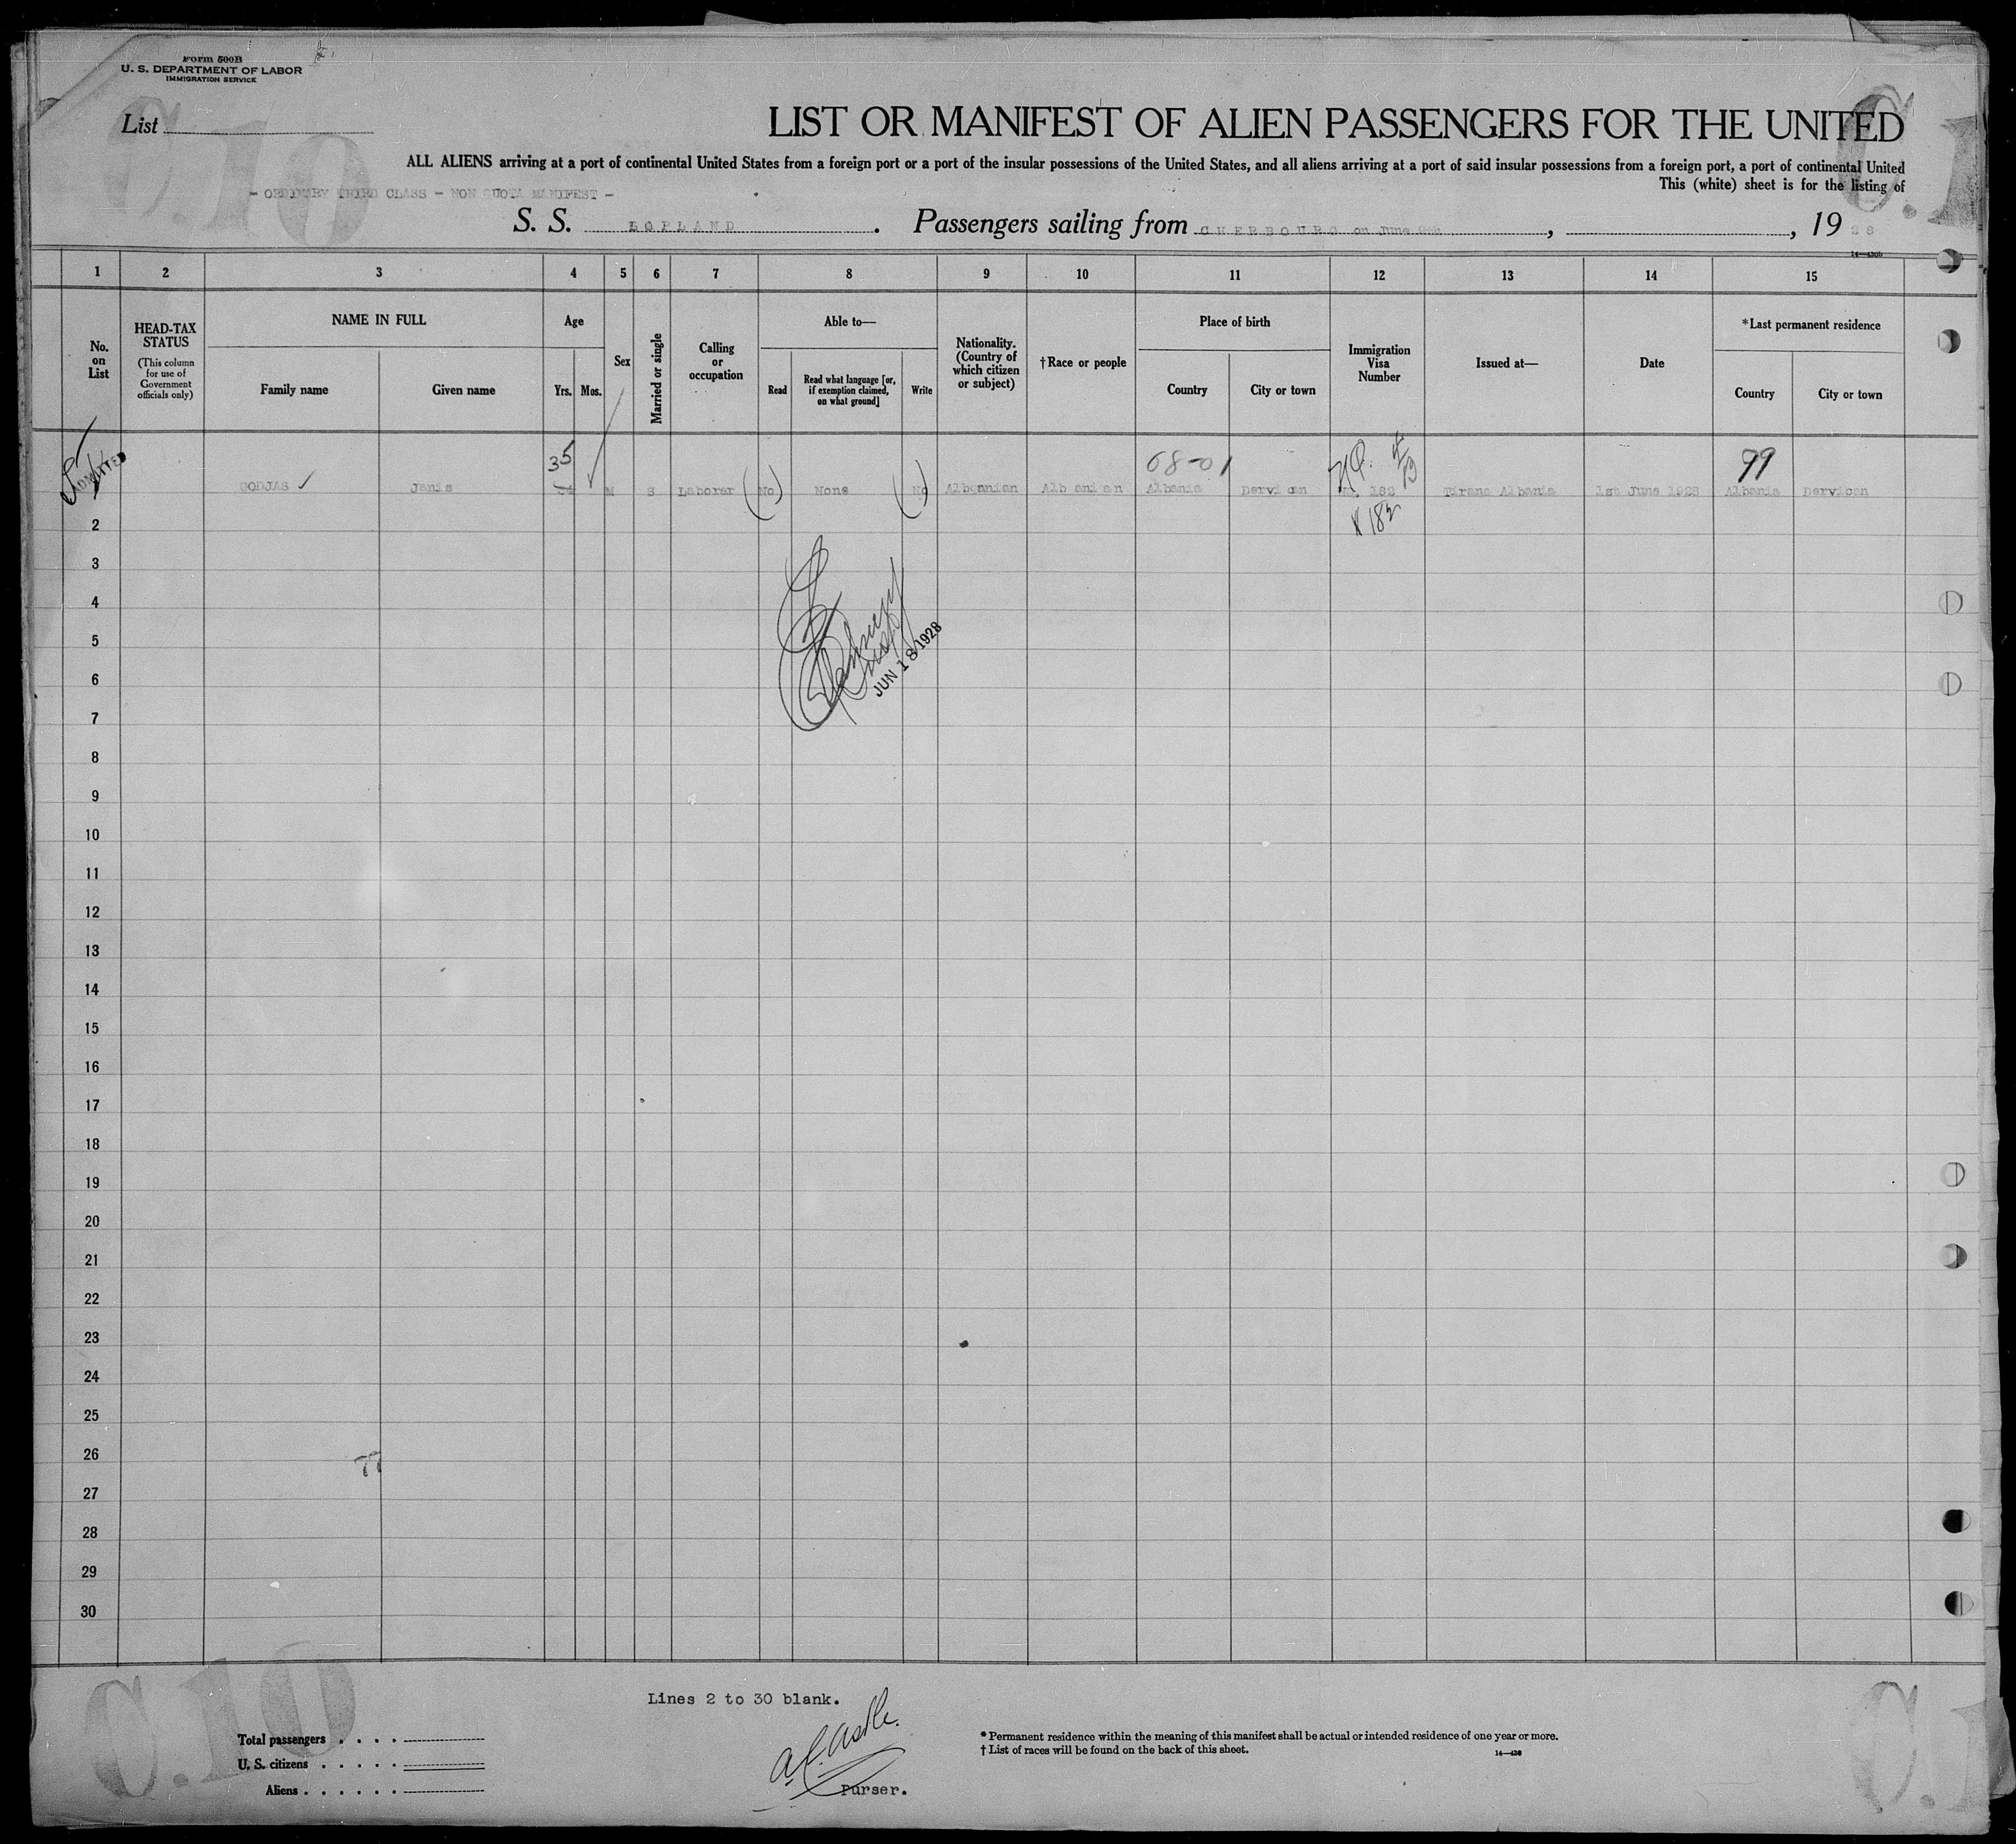 Form 500B
U. S. DEPARTMENT OF LABOR
IMMIGRATION SERVICE
C.10
C.1
List
LIST OR MANIFEST OF ALIEN PASSENGERS FOR THE UNITED
ALL ALIENS arriving at a port of continental United States from a foreign port or a port of the insular possessions of the United States, and all aliens arriving at a port of said insular possessions from a foreign port, a port of continental United
This (white) sheet is for the listing of
- ORDINARY THIRD CLASS - NON QUOTA MANIFEST -
S. S. LAPLAND. Passengers sailing from CHERBOURG on June , , 19 28
1 2 3 4 5 6 7 8 9 10 11 12 13 14 15
No. on List
HEAD-TAX STATUS
(This column for use of Government officials only)
NAME IN FULL
Family name
Given name
Age
Yrs.
Mos.
Sex
Married or single
Calling or occupation
Able to—
Read
Read what language [or, if exemption claimed, on what ground]
Write
Nationality. (Country of which citizen or subject)
†Race or people
Place of birth
Country
City or town
Immigration Visa Number
Issued at—
Date
*Last permanent residence
Country
City or town
35
68-01
99
ADMITTED
GODJAS Janis M S Laborer No None No Albannian Albanian Albania Dervican 182 Tirana Albania 1st June 1928 Albania Dervican
182
2
3
4
5
JUN 18 1928
6
7
8
9
10
11
12
13
14
15
16
17
18
19
20
21
22
23
24
25
26
27
28
29
30
C.10
C.1
Lines 2 to 30 blank.
Total passengers
U. S. citizens
Aliens
Purser.
* Permanent residence within the meaning of this manifest shall be actual or intended residence of one year or more.
† List of races will be found on the back of this sheet.